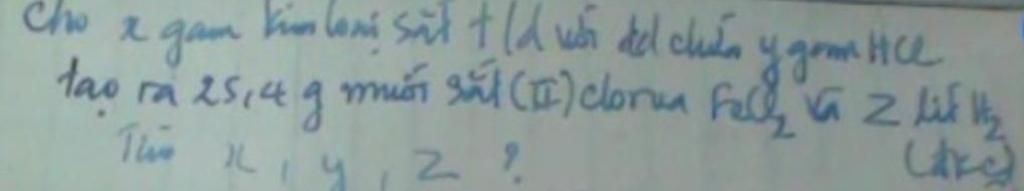 Cho x gam kim loại sắt t/d với dd chứa y gam HCl
tạo ra 25,4 g muối sắt (II) clorua FeCl2 và Z lít H2
Tìm x, y, Z ? (đkc)